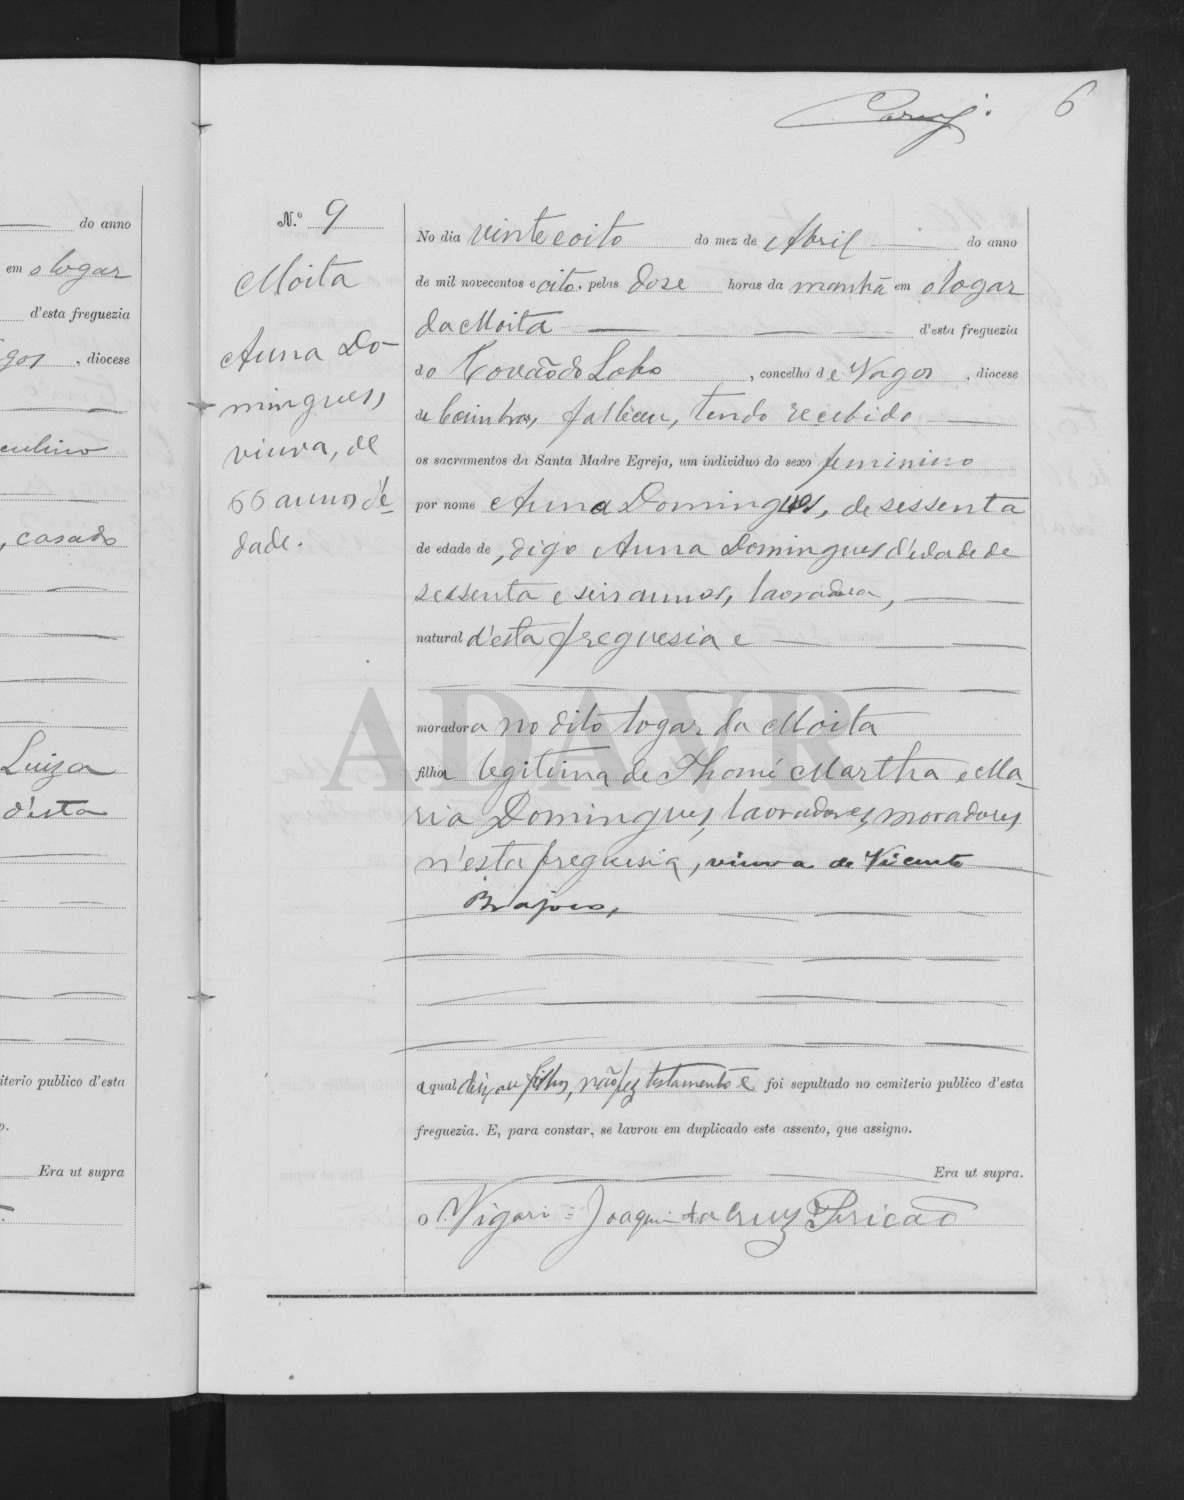 6
do anno
em o logar
d'esta freguezia
, diocese
culino
, casado
Luiza
d'esta
iterio publico d'esta
Era ut supra
N.º 9
Moita
Anna Do-
mingues,
viuva, de
66 annos d'e-
dade.
No dia vinte e oito do mez de Abril do anno
de mil novecentos e oito, pelas doze horas da manhã em o logar
da Moita d'esta freguezia
do Covão do Lobo, concelho de Vagos, diocese
de Coimbra, falleceu, tendo recebido
os sacramentos da Santa Madre Egreja, um individuo do sexo feminino
por nome Anna Domingues, de sessenta
de edade de, digo Anna Domingues d'edade de
sessenta e seis annos, lavradora,
natural d'esta freguesia e
moradora no dito logar da Moita
filha legitima de Thomé Martha e Ma-
ria Domingues, lavradores, moradores
n'esta freguesia, viuva de Vicente
a qual deixou filhos, não fez testamento e foi sepultado no cemiterio publico d'esta
freguezia. E, para constar, se lavrou em duplicado este assento, que assigno.
Era ut supra.
O Vigario = Joaquim da Cruz Pericão
ADAVR